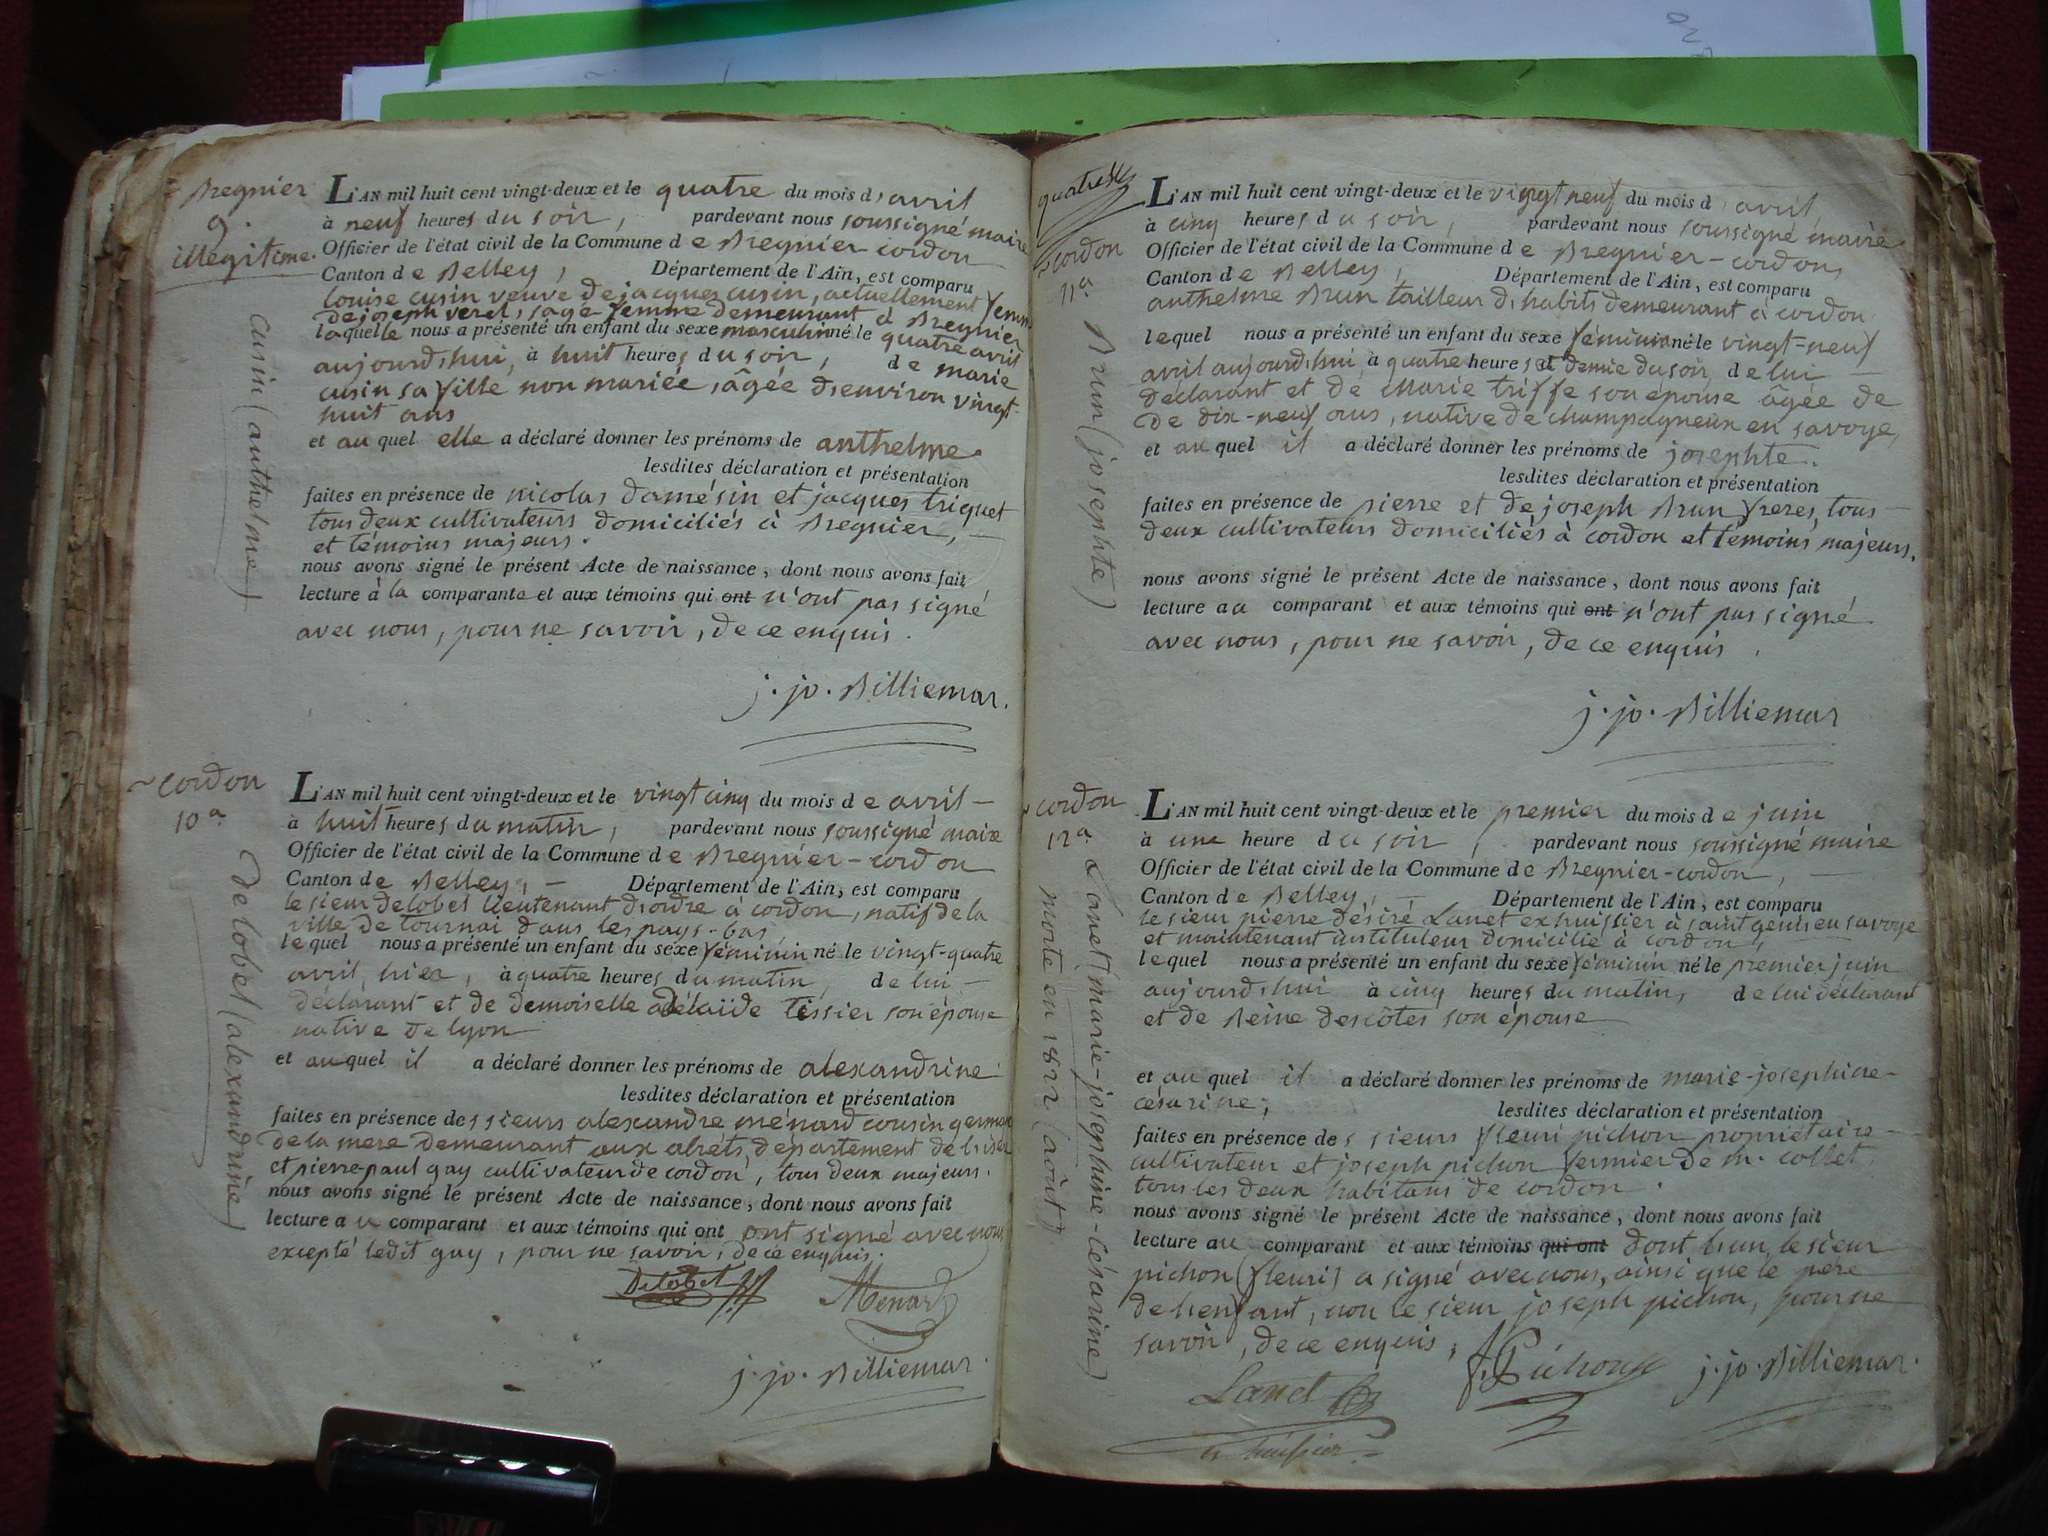 Bregnier
9.
illégitime.
cusin (anthelme)
L'AN mil huit cent vingt-deux et le quatre du mois d'avril
à neuf heures du soir, pardevant nous soussigné maire
Officier de l'état civil de la Commune de Bregnier-cordon
Canton de Belley, Département de l'Ain, est comparu
louise cusin veuve de jacques cusin, actuellement femme
de joseph veret, sage femme demeurant à Bregnier
laquelle nous a présenté un enfant du sexe masculin né le quatre avril
aujourd'hui, à huit heures du soir, de marie
cusin sa fille non mariée, âgée d'environ vingt-
huit ans
et au quel elle a déclaré donner les prénoms de anthelme.
lesdites déclaration et présentation
faites en présence de nicolas damésin et jacques triquet
tous deux cultivateurs domiciliés à Bregnier,
et témoins majeurs.
nous avons signé le présent Acte de naissance, dont nous avons fait
lecture à la comparante et aux témoins qui ont n'ont pas signé
avec nous, pour ne savoir, de ce enquis.
j. jo. Billiemar.
cordon
10a.
delobel (alexandrine)
L'AN mil huit cent vingt-deux et le vingt cinq du mois de avril
à huit heures du matin, pardevant nous soussigné maire
Officier de l'état civil de la Commune de Bregnier-cordon
Canton de Belley, Département de l'Ain, est comparu
le sieur delobel lieutenant d'ordre à cordon, natif de la
ville de tournai dans les pays-bas,
lequel nous a présenté un enfant du sexe féminin né le vingt-quatre
avril, hier, à quatre heures du matin, de lui
déclarant et de demoiselle adélaïde tissier son épouse
native de lyon
et auquel il a déclaré donner les prénoms de alexandrine
lesdites déclaration et présentation
faites en présence des sieurs alexandre ménard cousin germain
de la mere demeurant aux abrêts, département de l'isère
et pierre-paul gay cultivateur de cordon, tous deux majeurs.
nous avons signé le présent Acte de naissance, dont nous avons fait
lecture au comparant et aux témoins qui ont ont signé avec nous
excepté ledit guy, pour ne savoir, de ce enquis.
Delobel Menard
j. jo. Billiemar.
cordon
11a.
Brun (josephte)
L'AN mil huit cent vingt-deux et le vingt neuf du mois d'avril,
à cinq heures du soir, pardevant nous soussigné maire
Officier de l'état civil de la Commune de Bregnier-cordon,
Canton de Belley, Département de l'Ain, est comparu
anthelme Brun tailleur d'habits demeurant à cordon
lequel nous a présenté un enfant du sexe féminin né le vingt-neuf
avril aujourd'hui, à quatre heures et demie du soir, de lui
déclarant et de Marie triffe son épouse âgée de
de dix-neuf ans, native de champagneux en savoye,
et au quel il a déclaré donner les prénoms de josephte.
lesdites déclaration et présentation
faites en présence de pierre et de joseph Brun freres, tous
deux cultivateurs domiciliés à cordon et témoins majeurs.
nous avons signé le présent Acte de naissance, dont nous avons fait
lecture au comparant et aux témoins qui ont n'ont pas signé
avec nous, pour ne savoir, de ce enquis.
j. jo. Billiemar
cordon
12a.
Lanet (marie-josephine-césarine)
morte en 1822 (août)
L'AN mil huit cent vingt-deux et le premier du mois de juin
à une heure du soir, pardevant nous soussigné maire
Officier de l'état civil de la Commune de Bregnier-cordon,
Canton de Belley, Département de l'Ain, est comparu
le sieur pierre désiré Lanet ex huissier à saint genis en savoye
et maintenant instituteur domicilié à cordon,
lequel nous a présenté un enfant du sexe féminin né le premier juin
aujourd'hui à cinq heures du matin, de lui déclarant
et de Reine descôtes son épouse
et au quel il a déclaré donner les prénoms de marie-josephine-
césarine; lesdites déclaration et présentation
faites en présence des sieurs fleuri pichon propriétaire
cultivateur et joseph pichon fermier de mr. collet
tous les deux habitans de cordon.
nous avons signé le présent Acte de naissance, dont nous avons fait
lecture au comparant et aux témoins qui ont dont l'un, le sieur
pichon (fleuri) a signé avec nous, ainsi que le père
de l'enfant, non le sieur joseph pichon, pour ne
savoir, de ce enquis,
Lanet f. Pichon j. jo. Billiemar.